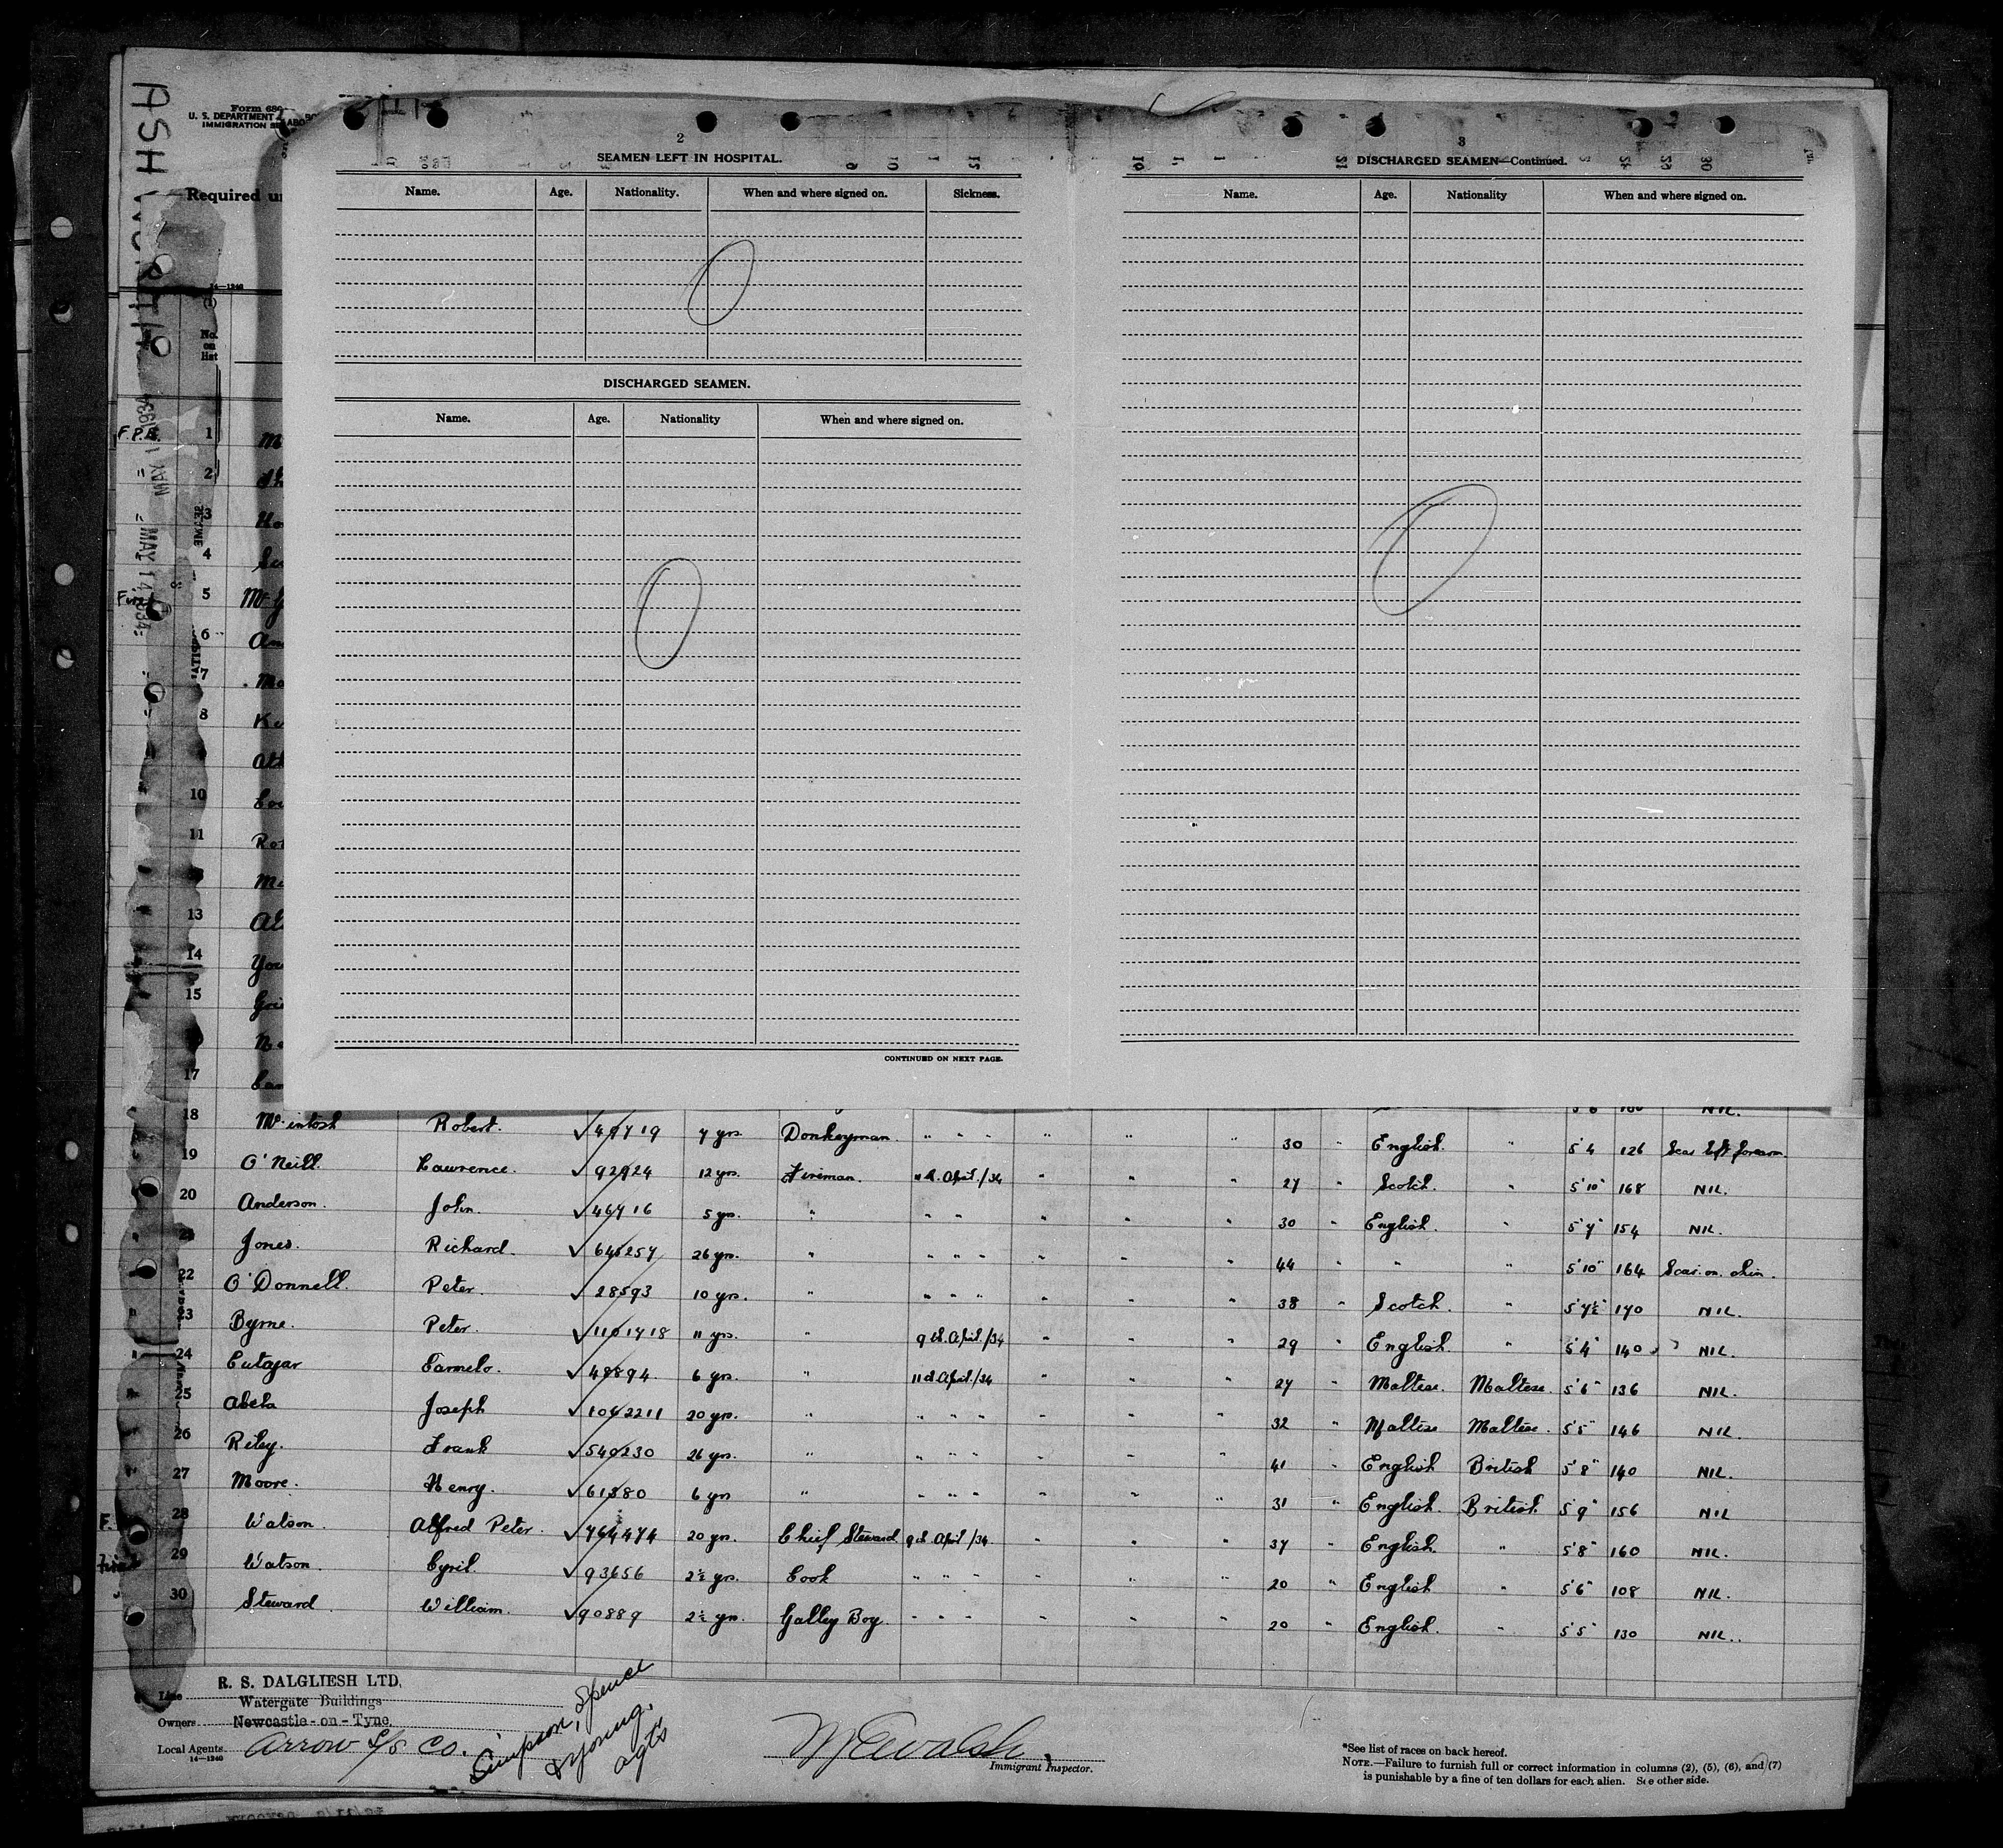 ASHWORTH
Form 680
U. S. DEPARTMENT
IMMIGRATION
Required
14—1240
(1)
No. on list
2
SEAMEN LEFT IN HOSPITAL.
Name. Age. Nationality. When and where signed on. Sickness.
0
DISCHARGED SEAMEN.
Name. Age. Nationality When and where signed on.
0
CONTINUED ON NEXT PAGE.
3
DISCHARGED SEAMEN—Continued.
Name. Age. Nationality When and where signed on.
0
MAY 1 1934
MAY 14 1934
F.P.B. 1
2
3
4
5
6
7
8
10
11
13
14
15
17
18 McIntosh Robert. √49719 7 yrs. Donkeyman. " " " " " " 30 " English. " 5'4 126 Scar left forearm
19 O'Neill. Lawrence. √92924 12 yrs. Fireman. 11th. April./34 " " " 27 " Scotch. " 5'10" 168 NIL.
20 Anderson. John. √46716 5 yrs. " " " " " " 30 " English. " 5'7" 154 NIL.
21 Jones. Richard. √645257 26 yrs. " " " " " " " 44 " " " 5'10" 164 Scar. on. chin.
22 O'Donnell. Peter. √28593 10 yrs. " " " " " " " 38 " Scotch. " 5'7½" 170 NIL.
23 Byrne. Peter. √1101718 11 yrs. " 9th. April./34 " " " 29 " English. " 5'4" 140 NIL.
24 Cutajar Carmelo. √48894. 6 yrs. " 11th April./34 " " " 27 " Maltese. Maltese. 5'6" 136 NIL.
25 Abela Joseph √1042211 20 yrs. " " " " " " " 32 " Maltese Maltese. 5'5" 146 NIL.
26 Riley. Frank √540230 26 yrs. " " " " " " " 41 " English British 5'8" 140 NIL.
27 Moore. Henry. √61380 6 yrs " " " " " " " 31 " English. British. 5'9" 156 NIL
28 Watson. Alfred Peter. √764474 20 yrs. Chief Steward 9th April /34 " " " 37 " English. " 5'8" 160 NIL.
29 Watson. Cyril. √93656 2½ yrs. Cook " " " " " " 20 " English " 5'6" 108 NIL.
30 Steward. William. √90889 2½ yrs. Galley Boy. " " " " " " 20 " English. " 5'5" 130 NIL.
Line R. S. DALGLIESH LTD.
Watergate Buildings
Owners Newcastle-on-Tyne.
Local Agents Arrow S/S Co.
14—1240
Simpson, Spence
& Young,
agts
Immigrant Inspector.
*See list of races on back hereof.
NOTE.—Failure to furnish full or correct information in columns (2), (5), (6), and (7)
is punishable by a fine of ten dollars for each alien. See other side.